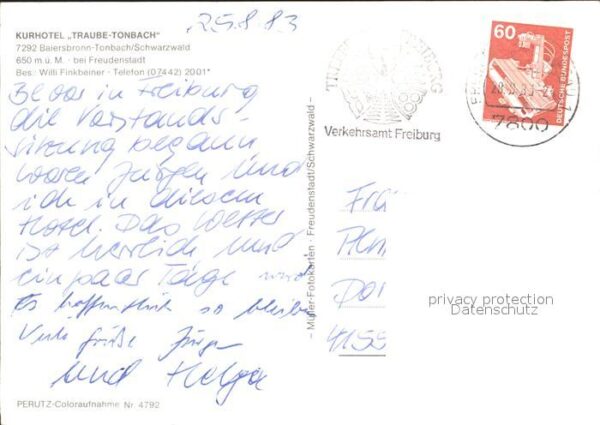 25.8.83
KURHOTEL „TRAUBE-TONBACH"
7292 Baiersbronn-Tonbach/Schwarzwald
650 m ü. M. · bei Freudenstadt
Bes.: Willi Finkbeiner · Telefon (07442) 2001*
Bevor in Freiburg
die Vorstands-
sitzung begann
waren Jürgen und
ich in diesem
Hotel. Das Wetter
ist herrlich und
ein paar Tage wird
es hoffentlich so bleiben
Viele Grüße Jürgen
und Helga
PERUTZ-Coloraufnahme Nr. 4792
– Müller-Fotokarten · Freudenstadt/Schwarzwald –
FREIBURG
Verkehrsamt Freiburg
60
DEUTSCHE BUNDESPOST
7800
Fra
Dor
4155
privacy protection
Datenschutz